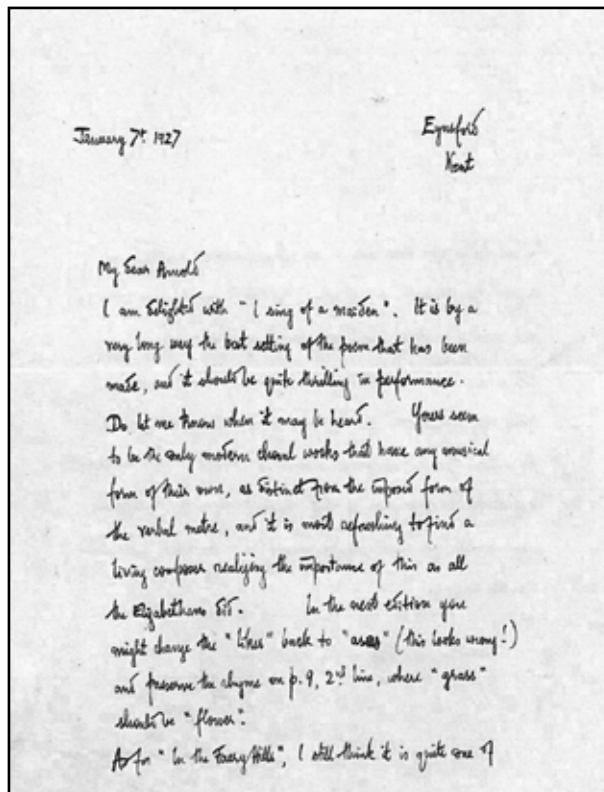 January 7th. 1927
Eynsford
Kent
My dear Arnold
I am delighted with "I sing of a maiden". It is by a
very long way the best setting of the poem that has been
made, and it should be quite thrilling in performance.
Do let me know when it may be heard. Yours seem
to be the only modern choral works that have any musical
form of their own, as distinct from the imposed form of
the verbal metre, and it is most refreshing to find a
living composer realizing the importance of this as all
the Elizabethans did. In the next edition you
might change the "likes" back to (this looks wrong!)
and preserve the rhyme on p. 9, 2nd line, where "grass"
should be "flower".
As for "In the Faery Hills", I still think it is quite one of